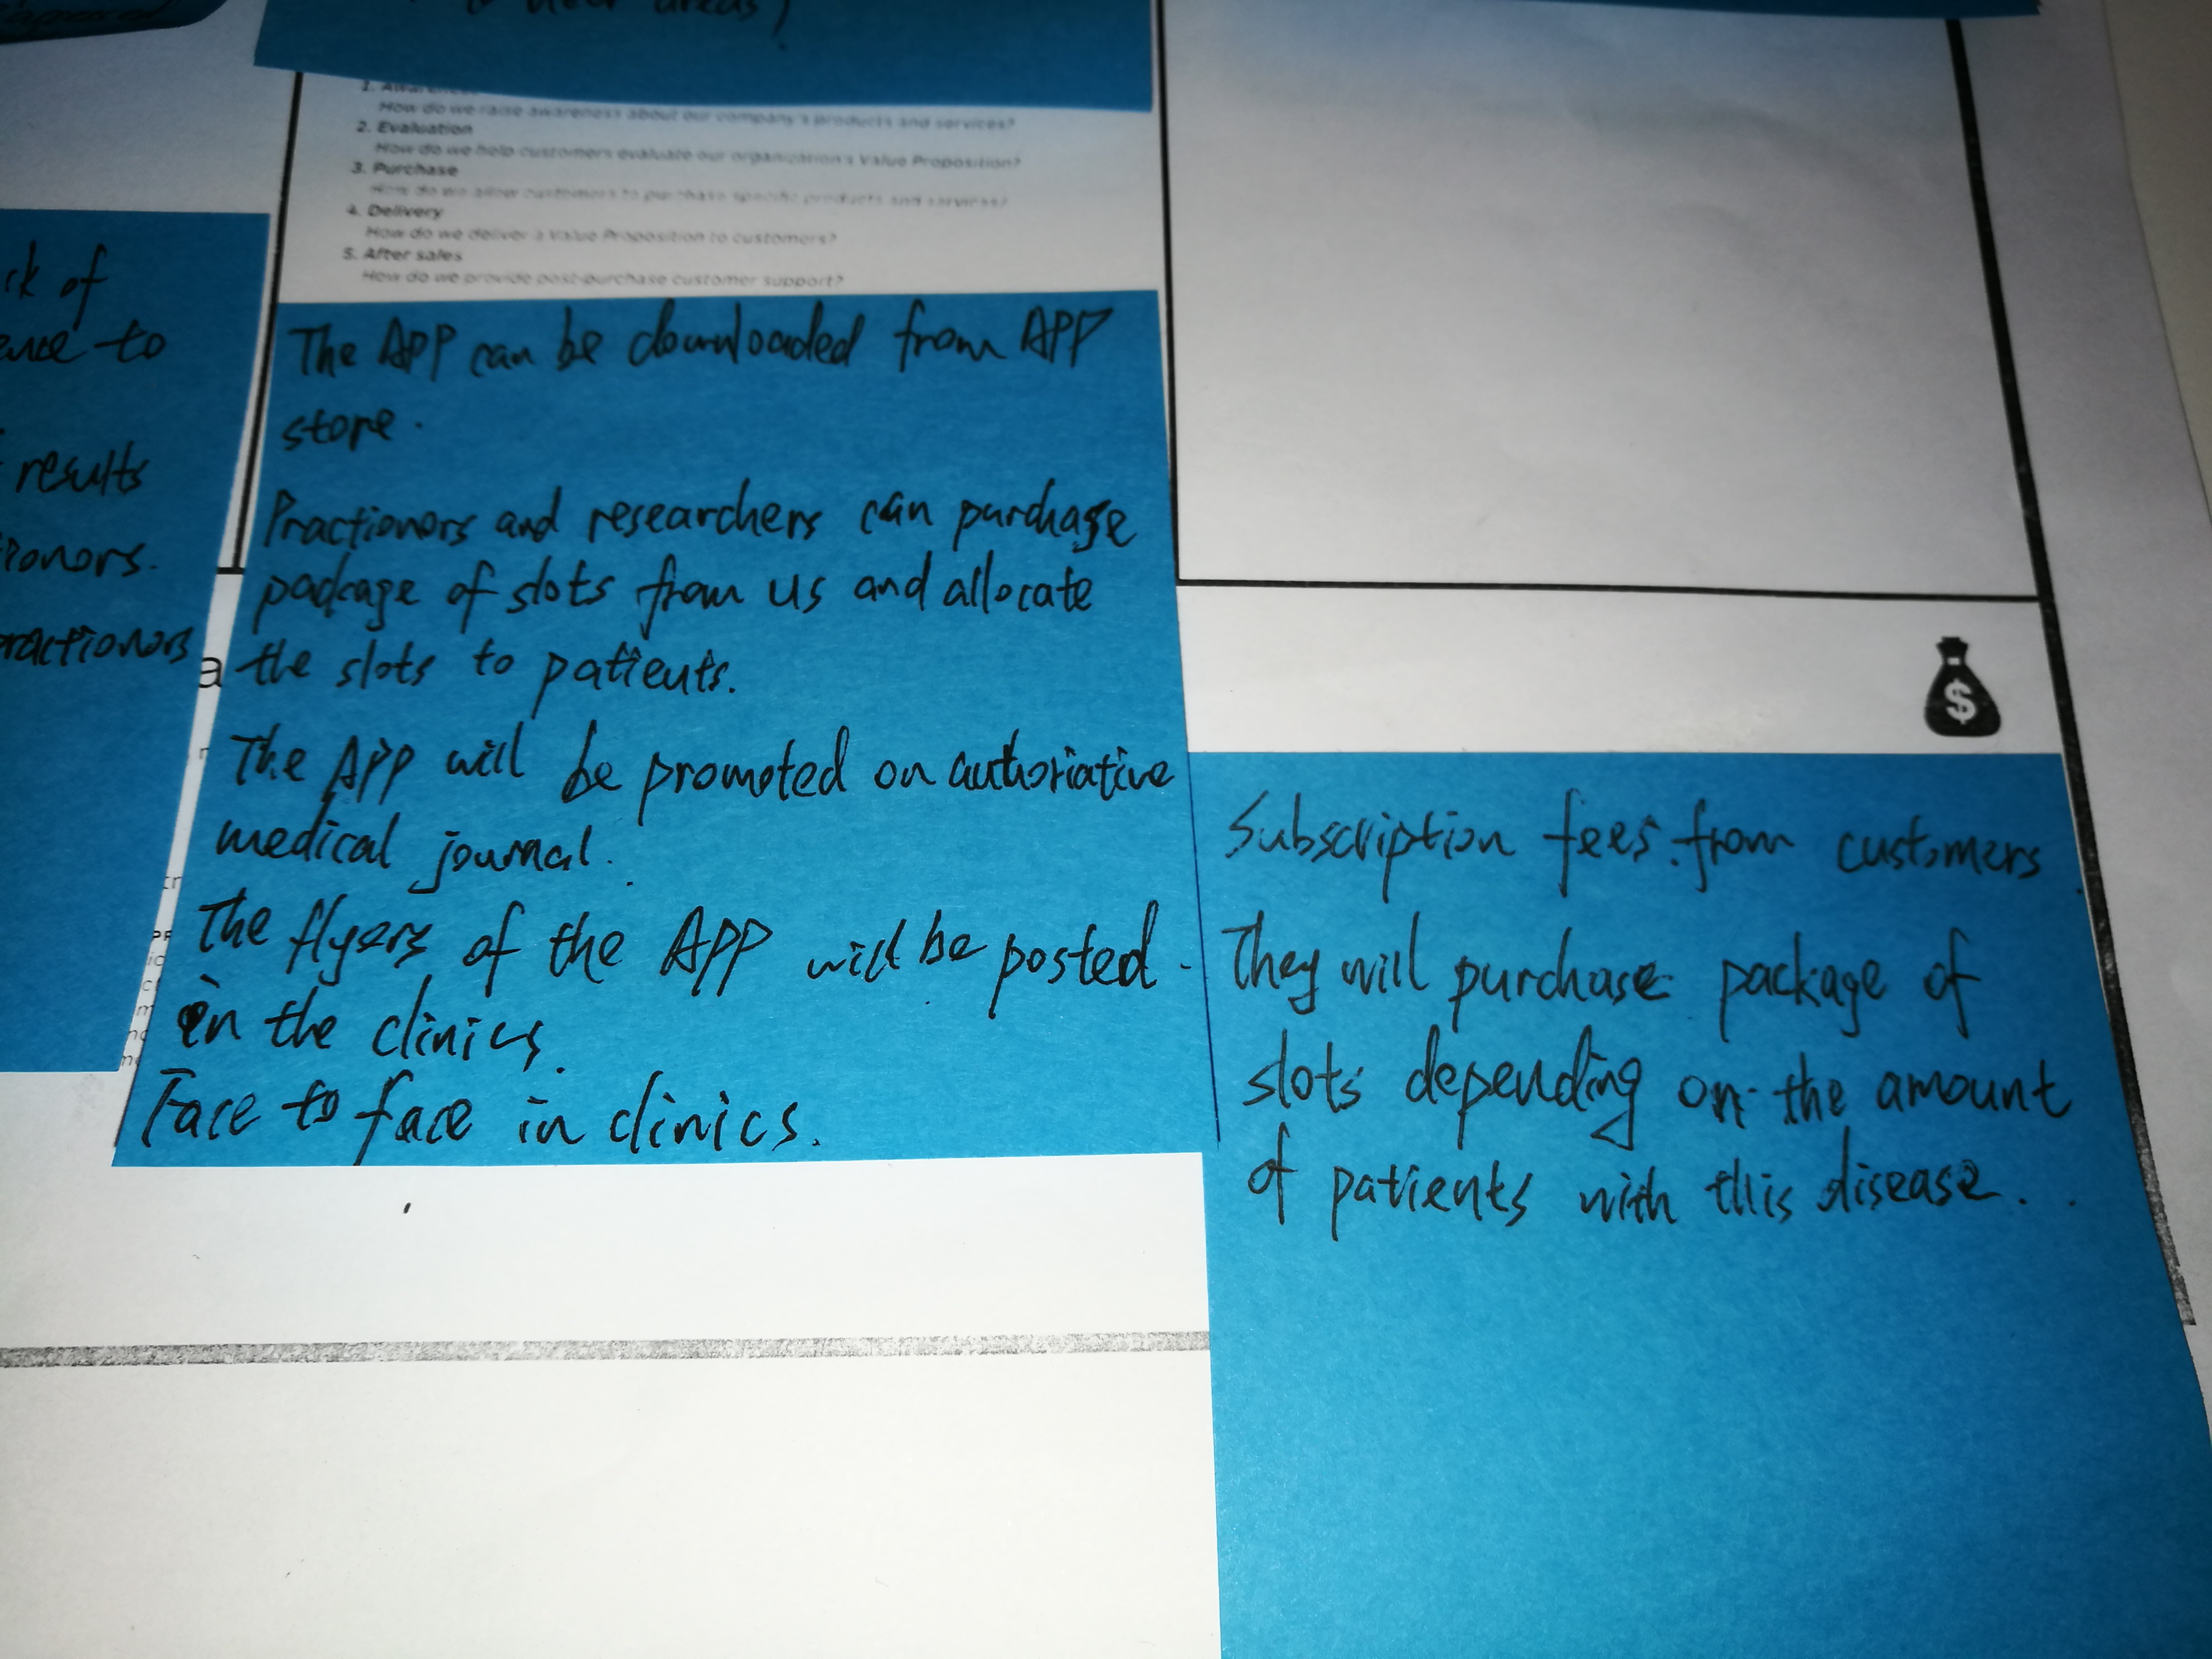 to their areas)
How do we raise awareness about our company's products and services?
2. Evaluation
How do we help customers evaluate our organization's Value Proposition?
3. Purchase
How do we allow customers to purchase specific products and services?
4. Delivery
How do we deliver a Value Proposition to customers?
5. After sales
How do we provide post-purchase customer support?
of
to
results
ractionors
a
The APP can be downloaded from APP
store.
Practionors and researchers can purchase
package of slots from us and allocate
the slots to patients.
The APP will be promoted on authoriative
medical journal.
The flyers of the APP will be posted
in the clinics.
Face to face in clinics.
$
Subscription fees from customers
They will purchase package of
slots depending on the amount
of patients with this disease.